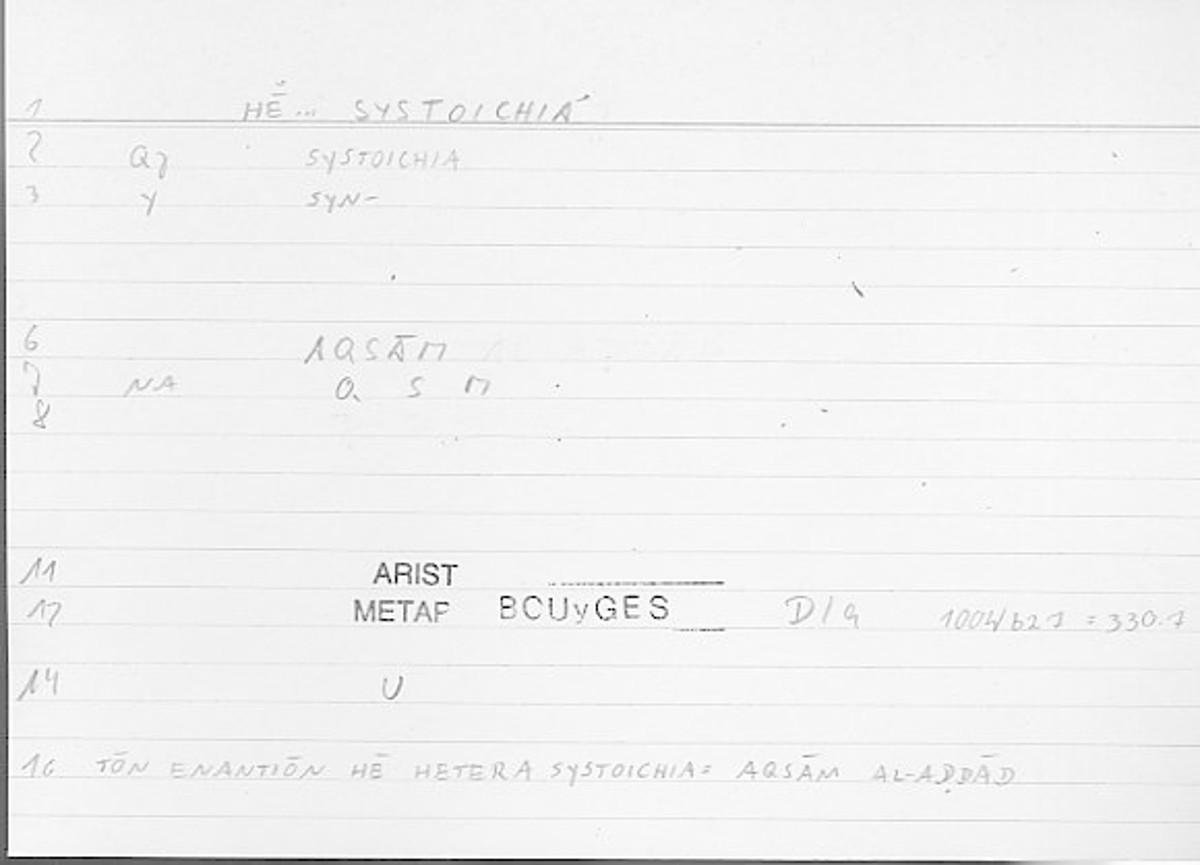 1 HĒ̆... SYSTOICHIÁ
2 Q7 SYSTOICHIA
3 Y SYN-
6 AQSĀM
7 NA Q S M
8
11 ARIST
12 METAF BCUyGES D/4 1004b27 = 330.7
14 U
16 TŌN ENANTIŌN HĒ HETERA SYSTOICHIA= AQSĀM AL-AḌDĀD